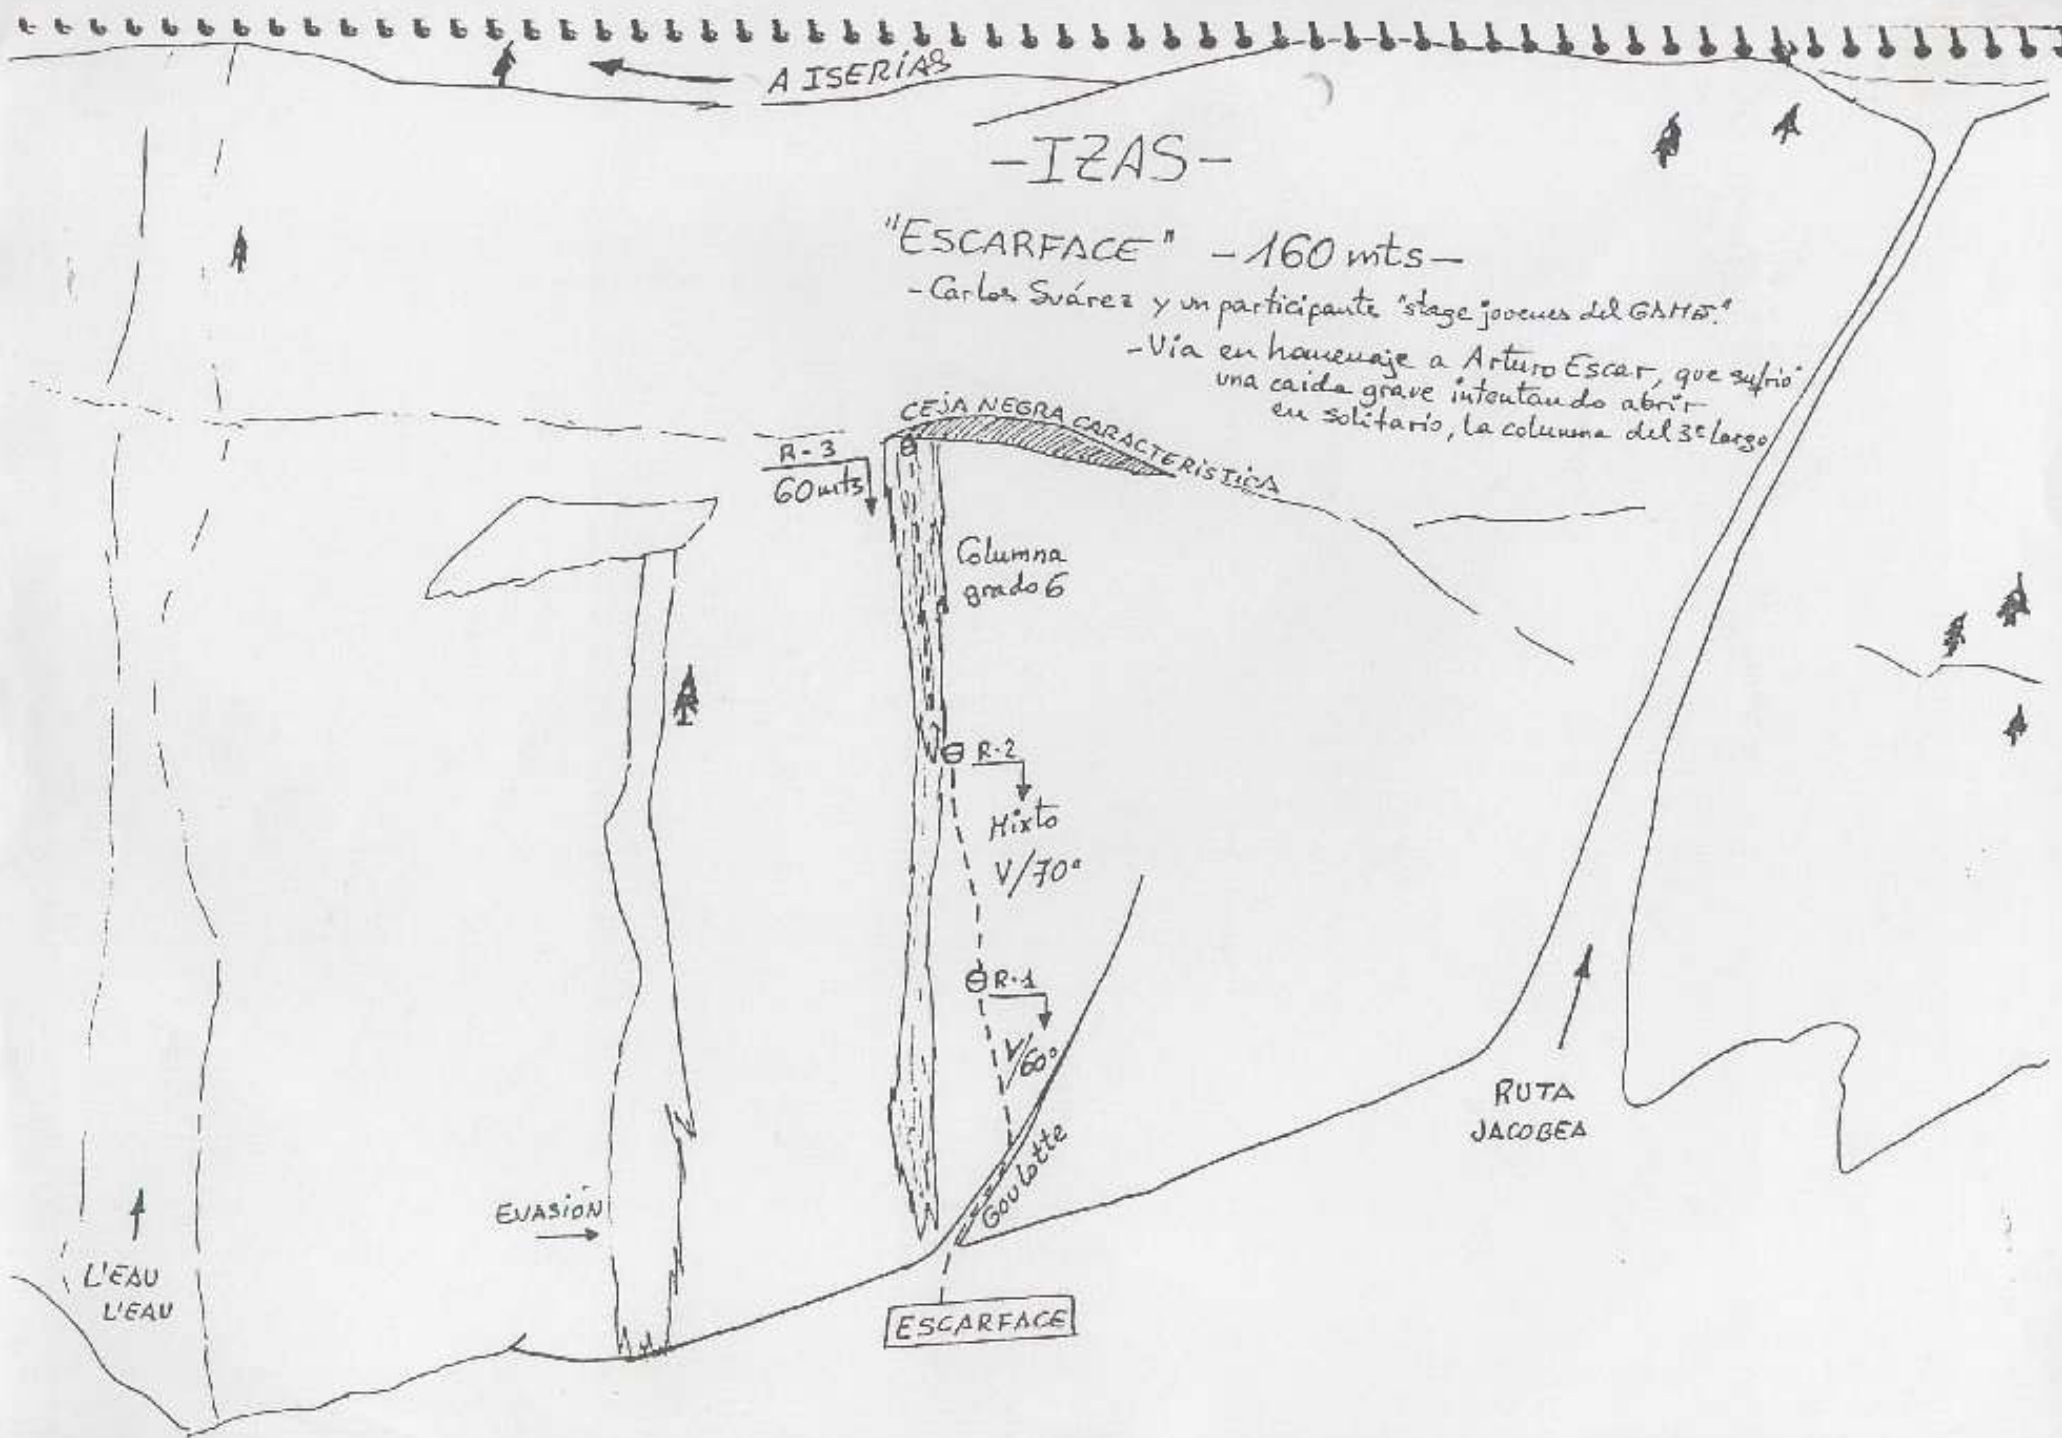 A ISERÍAS
-IZAS-
"ESCARFACE" -160 mts-
-Carlos Suárez y un participante "stage jovenes del GAME."
-Vía en homenaje a Arturo Escar, que sufrió
una caida grave intentando abrir
en solitario, la columna del 3er largo
CEJA NEGRA CARACTERISTICA
R-3
60 mts
Columna
grado 6
R-2
Mixto
V/70°
R-1
V/60°
Goulotte
RUTA
JACOBEA
EVASIÓN
L'EAU
L'EAU
ESCARFACE